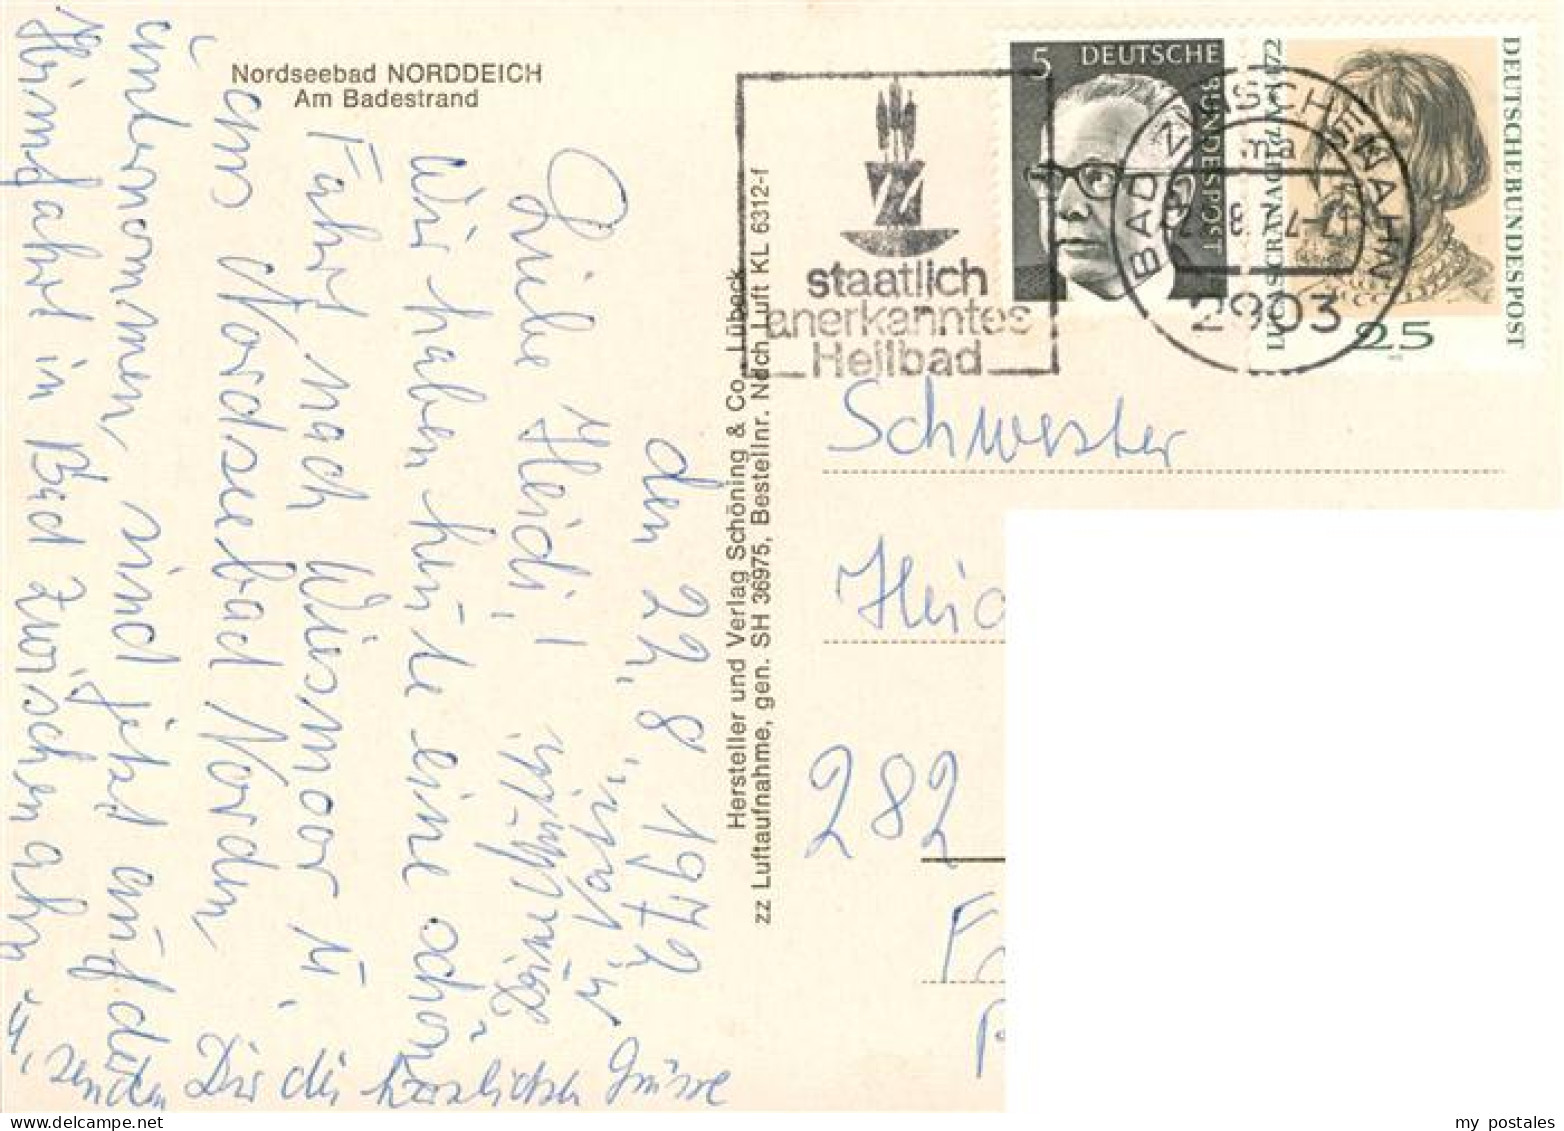 Nordseebad NORDDEICH
Am Badestrand
den 22, 8, 1972
Liebe Heidi, !
Wir haben heute eine schöne
Fahrt nach Wiesmoor u,
ans Nordseebad Norden
unternommen sind jetzt auf der
Heimfahrt in Bad Zwischenahn
u, senden Dir die herzlichsten Grüsse
Deine
u
Hersteller und Verlag Schöning & Co, Lübeck
zz Luftaufnahme, gen. SH 36975, Bestellnr. Ndch Luft KL 6312-f
staatlich
anerkanntes
Heilbad
5 DEUTSCHE
BUNDESPOST
LUCAS CRANACH D.Ä. 1472
DEUTSCHE BUNDESPOST
25
BAD ZWISCHENAHN
2903
Schwester
Heid
282